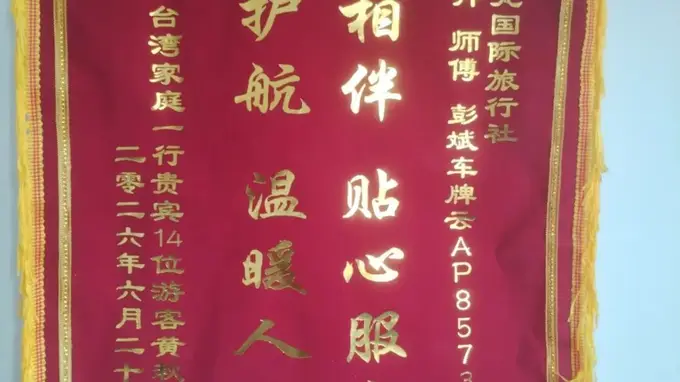 国际旅行社
师傅 彭斌车牌云AP8573
相伴 贴心服
护航 温暖人
台湾家庭一行贵宾14位游客黄
二零二六年六月二十